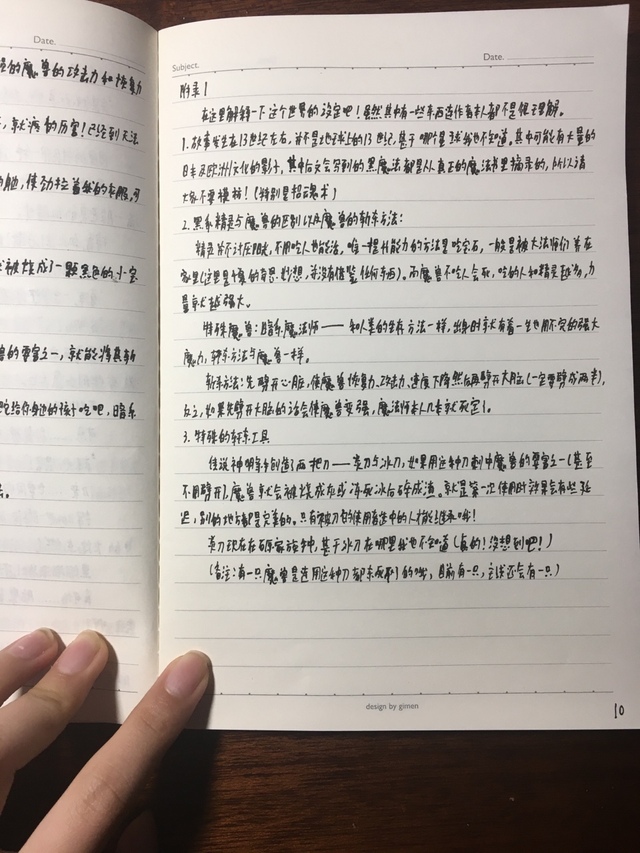 Date.
兽的攻击力和恢复力
就病的厉害!已经到无法
被炼成了一颗黑色的小宝
兽的要害之一,就能将其斩
吃给你身边的孩子吃吧,暗乐
Subject.
Date.
附录1
在这里解释一下这个世界的设定吧!虽然其中有一些东西连作者本人都不是很理解。
1.故事发生在13世纪左右,并不是地球上的13世纪,基于哪个星球我也不知道。其中可能有大量的
日本及欧洲文化的影子,其中后文会写到的黑魔法都是从真正的魔法书里摘录的,所以请
大家不要模仿!(特别是招魂术)
2.黑系精灵与魔兽的区别以及魔兽的斩杀方法:
精灵并不讨厌阳光,不用吃人也能活。唯一提升能力的方法是吃宝石,一般是被大法师们养在
家里(这里是十馍的奇思妙想,并没有借鉴任何东西)。而魔兽不吃人会死,吃的人和精灵越多,力
量就越强大。
特殊魔兽:暗乐魔法师——和人类的生存方法一样,出身时就有着一生也用不完的强大
魔力,斩杀方法与魔兽一样。
斩杀方法:先劈开心脏,使魔兽恢复力、攻击力、速度下降然后再劈开大脑(一定要劈成两半),
反之,如果先劈开大脑的话会使魔兽变强,魔法师本人几乎就死定了。
3.特殊的斩杀工具
传说神明年少时创造了两把刀——炎刀与冰刀,如果用这种刀刺中魔兽的要害之一(甚至
不用劈开),魔兽就会被烧成灰或冻成冰后碎成渣。就是第一次使用时效果会有些延
迟,别的地方都是完美的。只有被刀的使用者选中的人才能继承哦!
炎刀现在在石原家族手中,基于冰刀在哪里我也不知道(真的!没想到吧!)
(备注:有一只魔兽是连用这种刀都杀不死的哦,目前有一只,应该还会有一只)
design by gimen
10